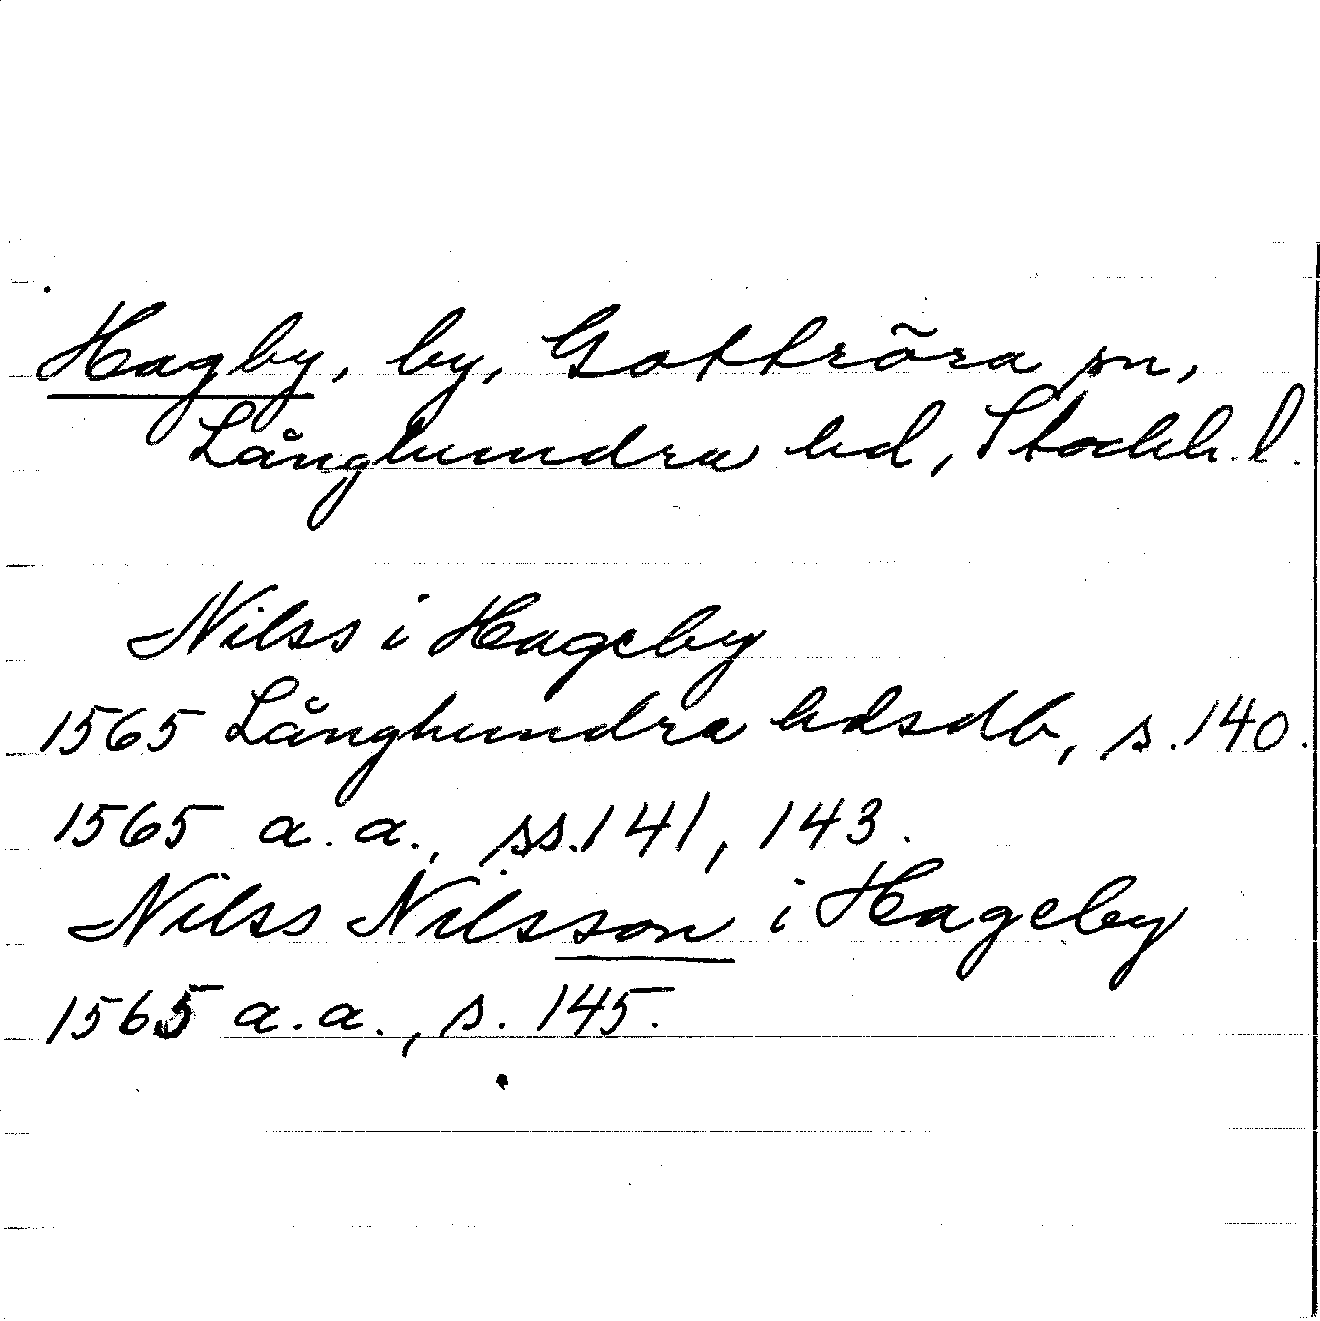 Hagby, by, Gottröra sn,
Långhundra hd, Stockh. l.
Nilss i Hageby
1565 Långhundra hdsdb, s. 140.
1565 a. a., ss. 141, 143.
Nilss Nilsson i Hageby
1565 a. a., s. 145.